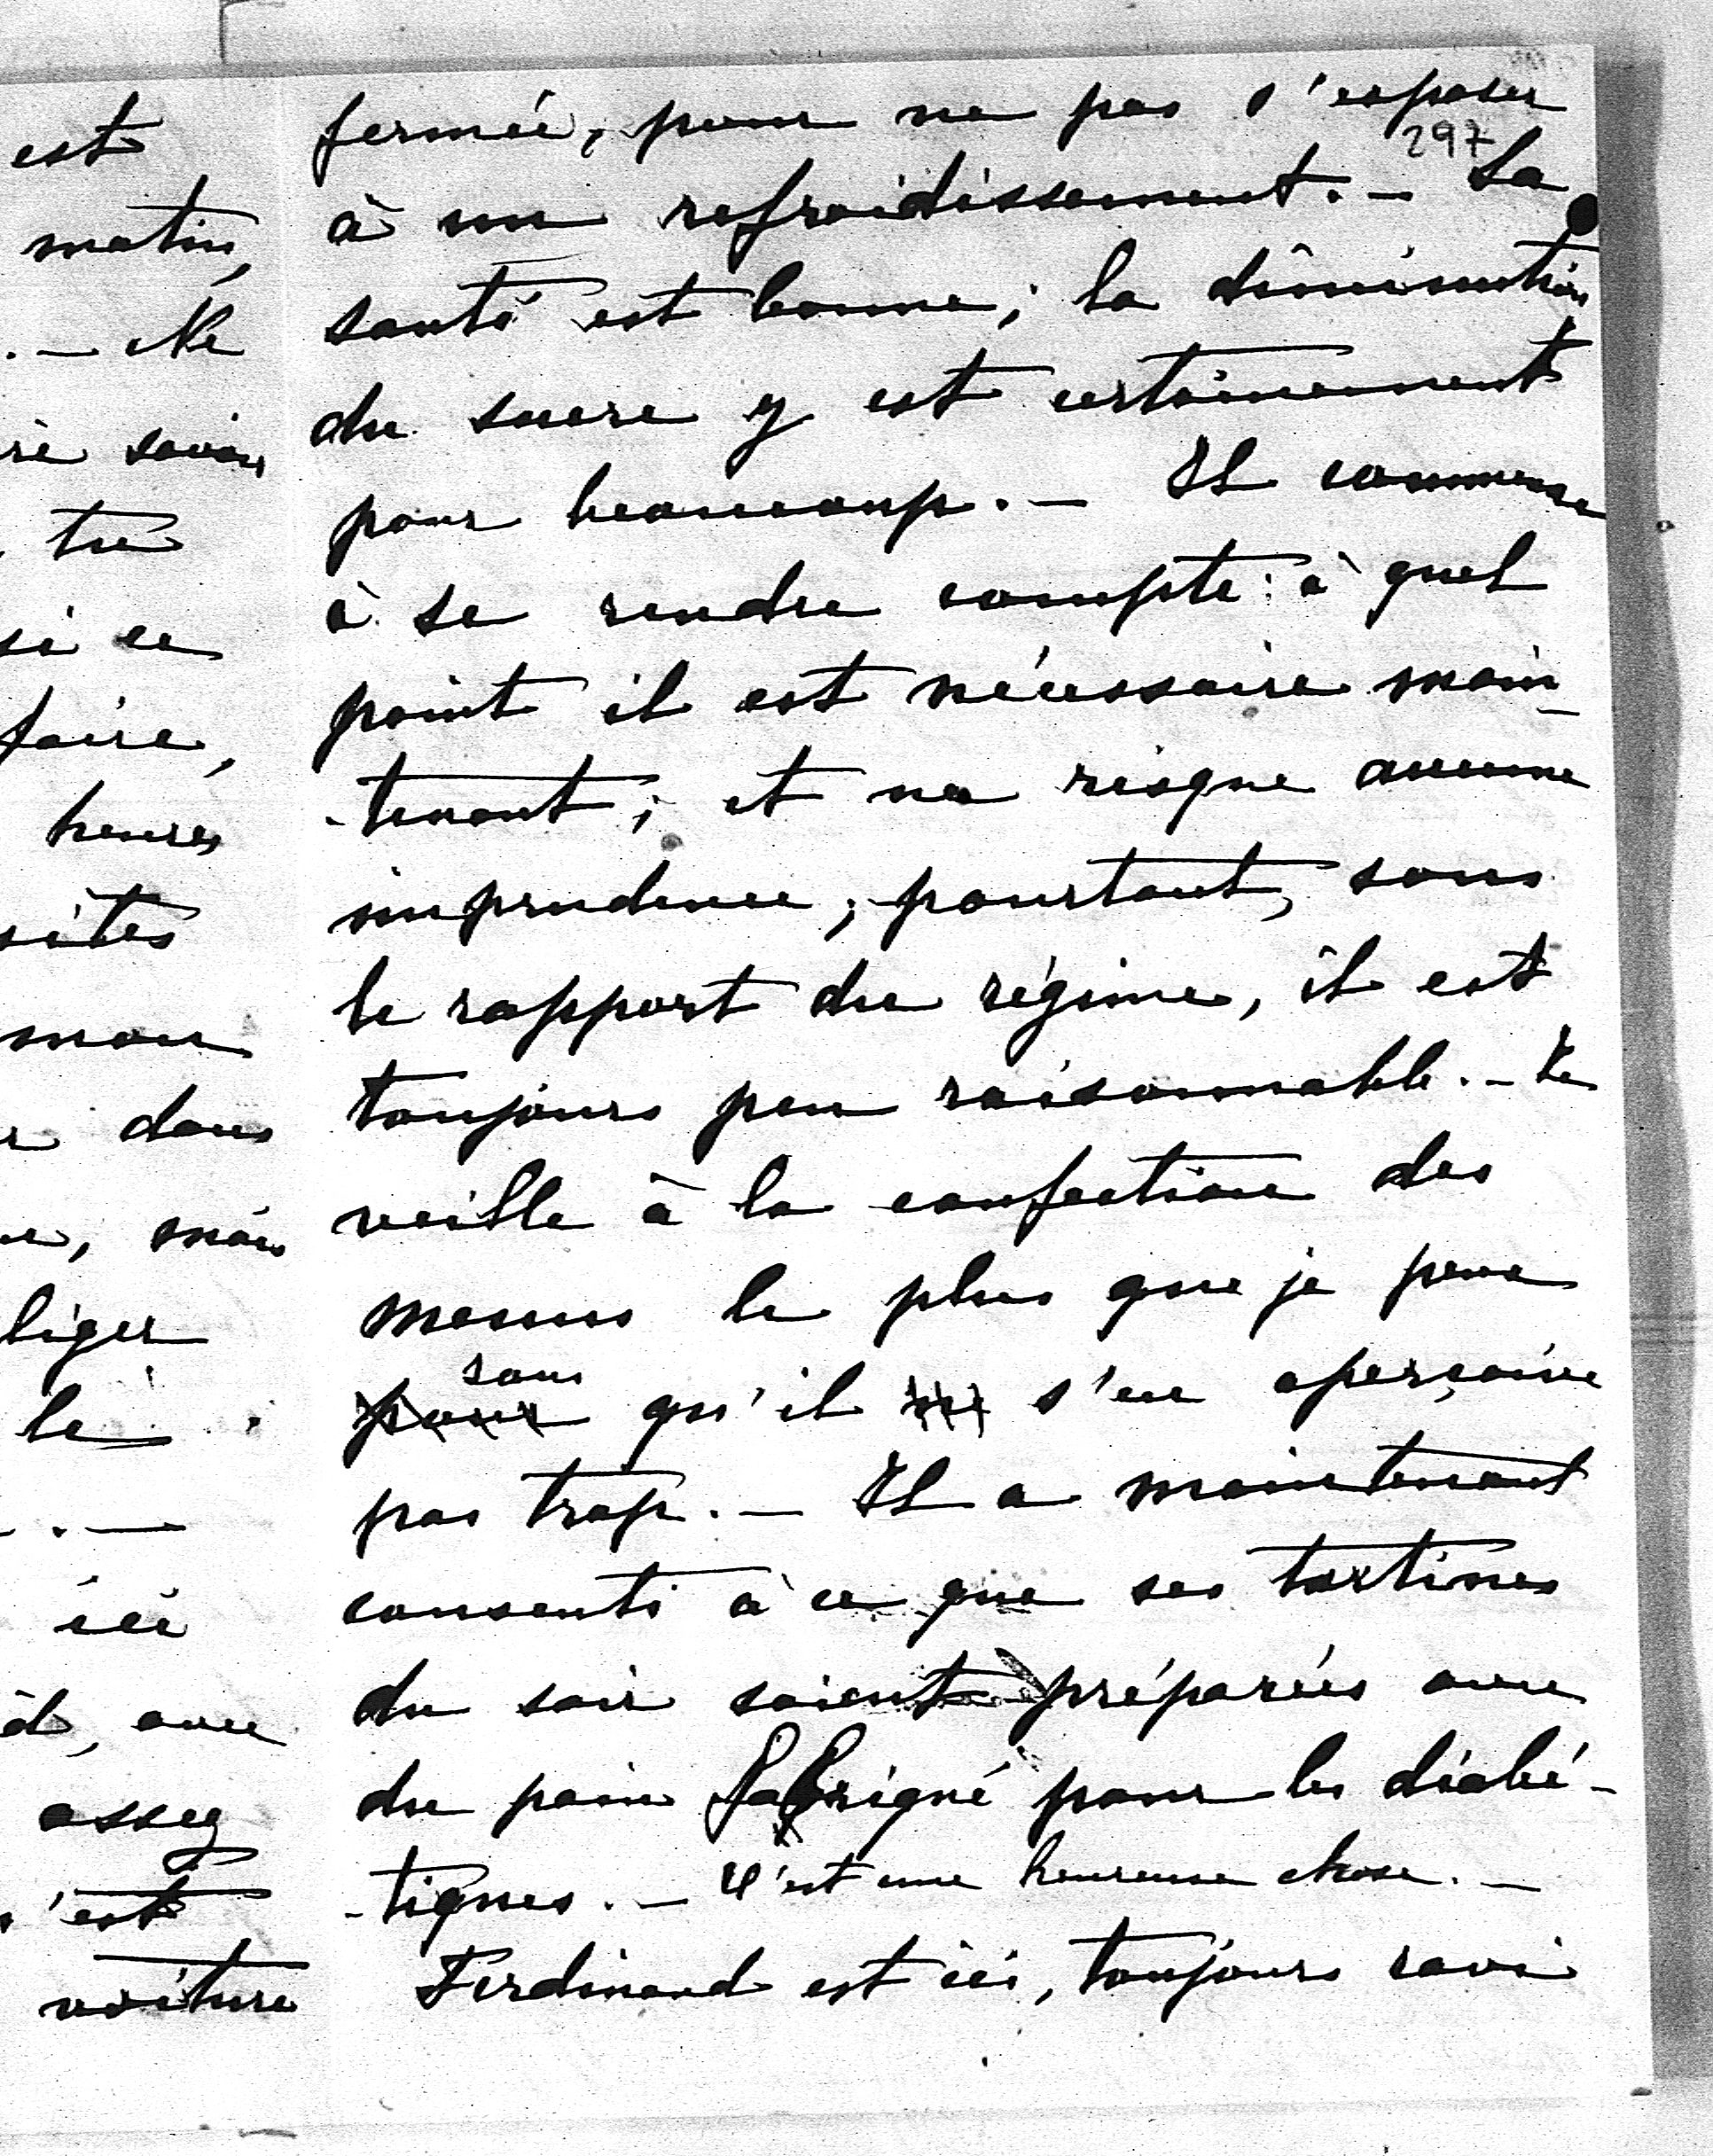 est
matin,
. — Me
rè savoir
tre
si ce
faire,
heures
sites
mon
r dans
, mais
liger
le
. —
ici
d, avec
assez
'est
voiture
297
fermée, pour ne pas s'exposer
à un refroidissement. — La
santé est bonne; la diminution
du sucre y est certainement
pour beaucoup. — Il commence
à se rendre compte à quel
point il est nécessaire main-
-tenant; et ne risque aucune
imprudence; pourtant, sous
le rapport du régime, il est
toujours peu raisonnable. — Je
veille à la confection des
menus le plus que je peux
sans
pour qu'il ne s'en aperçoive
pas trop. — Il a maintenant
consenti à ce que ses tartines
du soir soient préparées avec
du pain fabriqué pour les diabé-
-tiques. — C'est une heureuse chose. —
Ferdinand est ici, toujours ravi